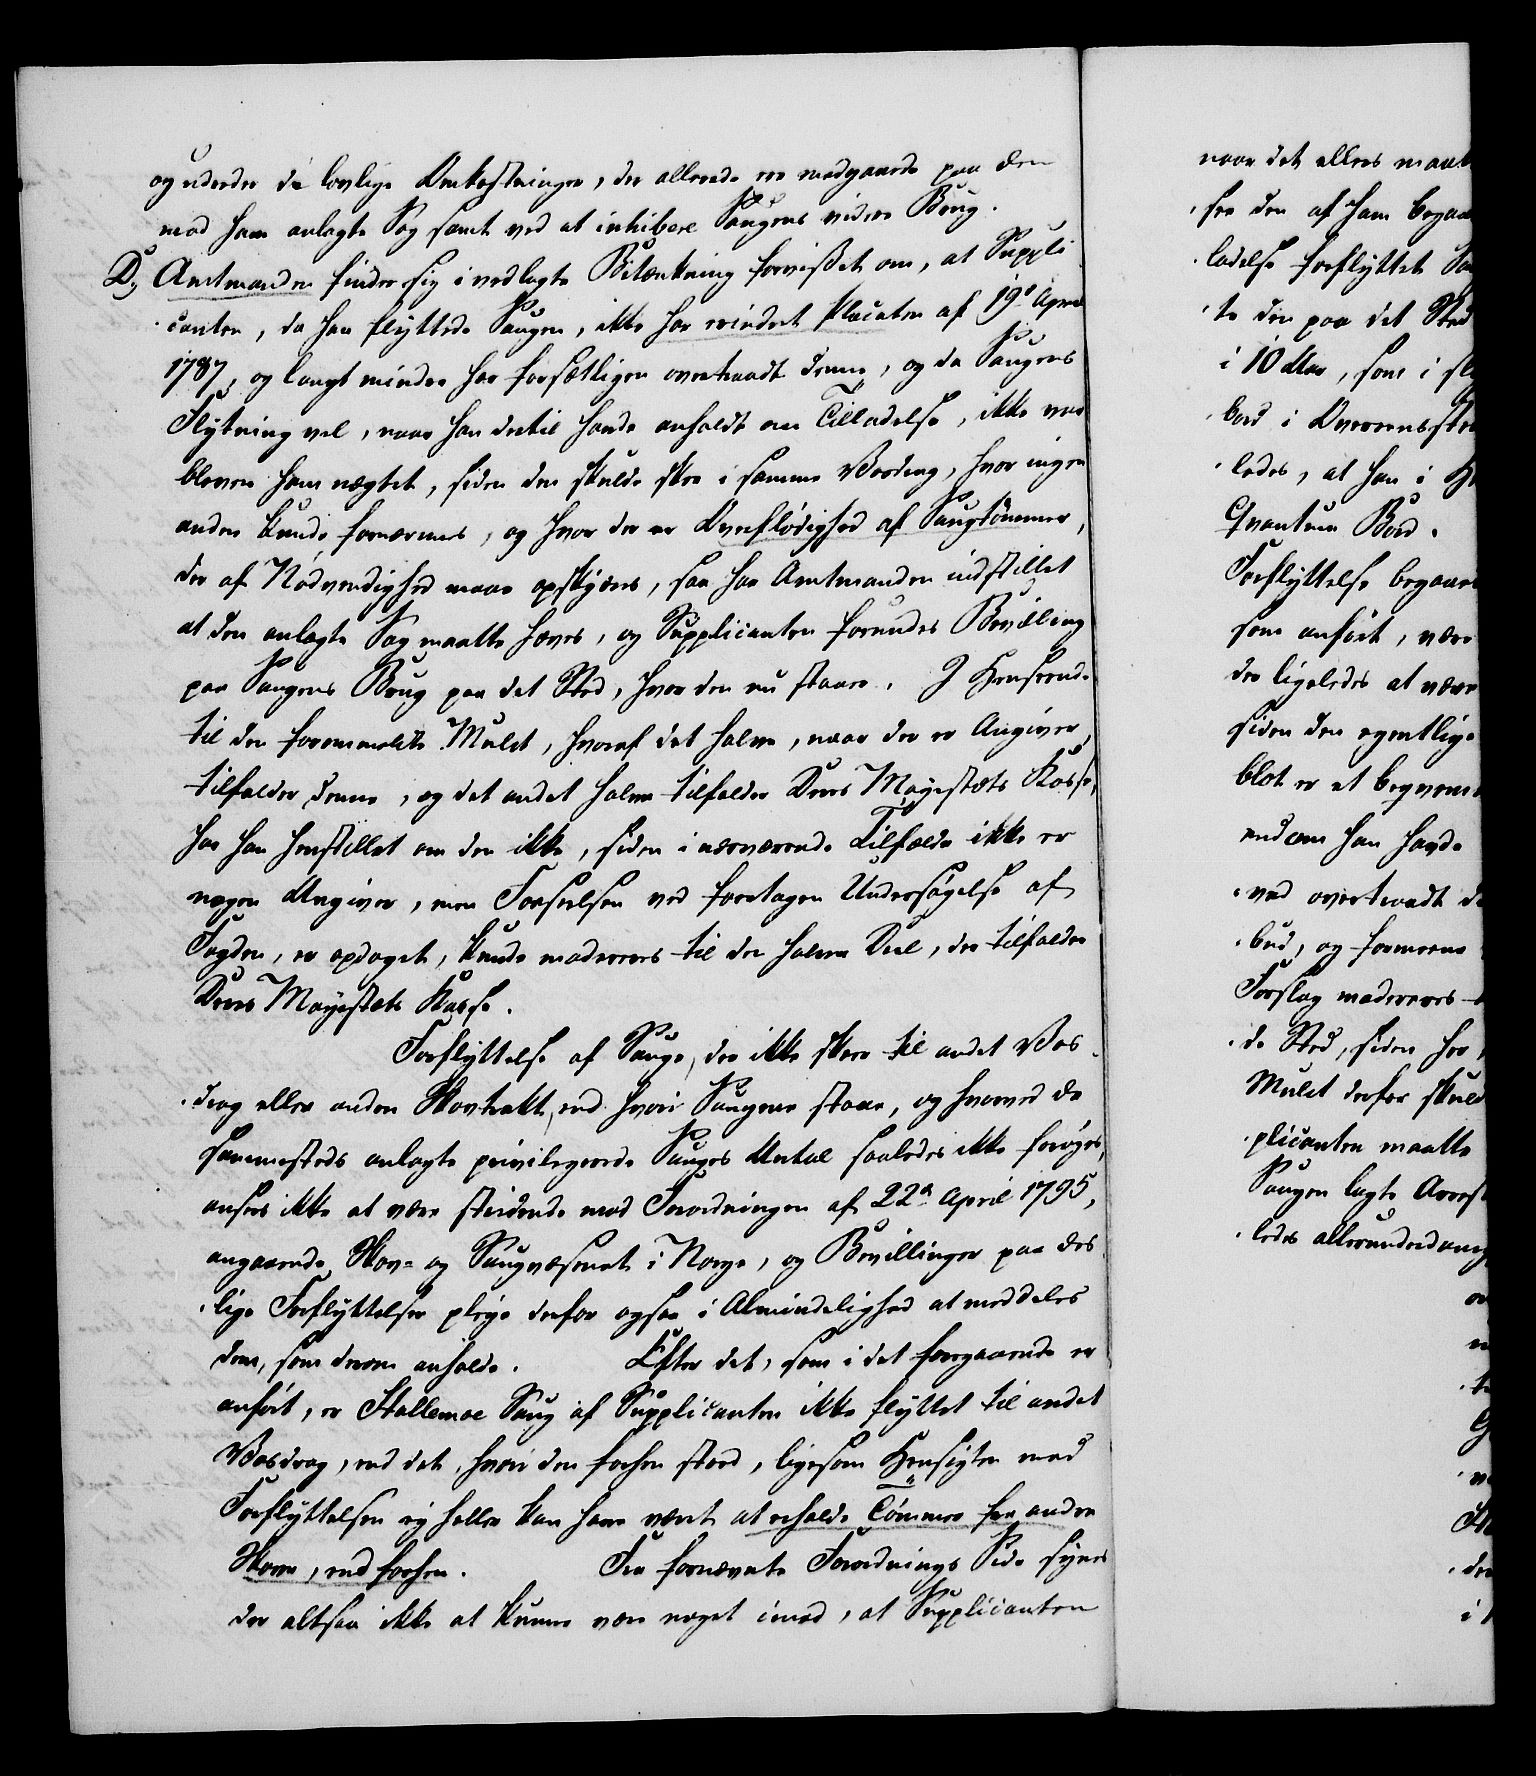 og uderede de lovlige Omkostninger, der allerede ere medgaaede paa den
mod ham anlagte Sag samt ved at inhibere Saugens videre Brug.
D, Amtmanden finder sig i vedlagte Betænkning forvisset om, at Suppli-
canten, da han flyttede Saugen, ikke har erindret Placaten af 19de April
1787, og langt mindre har forsætligen overtraadt denne, og da Saugens
Flytning vel, naar han dertil havde anholdt om Tilladelse, ikke var
bleven ham nægtet, siden den skulde skee i samme Vasdrag, hvor ingen
anden kunde fornærmes, og hvor der er Overflødighed af Saugtømmer,
der af Nødvendighed maae opskjæres, saa har Amtmanden indstillet
at den anlagte Sag maatte hæves, og Supplicanten forundes Bevilling
paa Saugens Brug paa det Sted, hvor den nu staaer. I Henseende
til den forommeldte Mulct, hvoraf det halve, naar der er Angiver,
tilfalder denne, og det andet halve tilfalder Deres Majestæts Kasse,
har han henstillet om den ikke, siden i nærværende Tilfælde ikke er
nogen Angiver, men Forseelsen ved foretagen Undersøgelse af
Fogden, er opdaget, kunde modereres til den halve Deel, der tilfalder
Deres Majestæts Kasse.
Forflyttelse af Sauge, der ikke skeer til andet Vas-
drag eller anden Skovtrakt, end hvori Saugene staae, og hvorved de
sammesteds anlagte privilegerede Sauges Antal saaledes ikke forøges,
ansees ikke at være stridende mod Forordningen af 22de April 1795,
angaaende Skov- og Saugvæsenet i Norge, og Bevillinger paa des-
lige Forflyttelser pleje derfor ogsaa i Almindelighed at meddeles
dem, som derom anholde. Efter det, som i det foregaaende er
anført, er Stallemoe Saug af Supplicanten ikke flyttet til andet
Vasdrag, end det, hvori den forhen stoed, ligesom Hensigten med
Forflyttelsen ej heller kan have været at erholde Tømmer fra andre
Skove, end forhen. Fra fornævnte Forordnings Side synes
der altsaa ikke at kunne være noget imod, at Supplicanten
naar det ellers maat
for den af ham begaae
ladelse forflyttet Sau
te den paa det Sted
i 10 Mar, som i
Bord i Overeensste
ledes, at han i
Qvantum Bord.
Forflyttelse begaae
som anført, være
der ligeledes at være
siden den egentlige
blot er et beqvemme
endom han havde
ved overtraadt de
bud, og formeene
Forslag modereres
de Sted, siden han
Mulct derfor skuld
plicanten maatte
Saugen lagte Arrest
ledes allerunderdanig